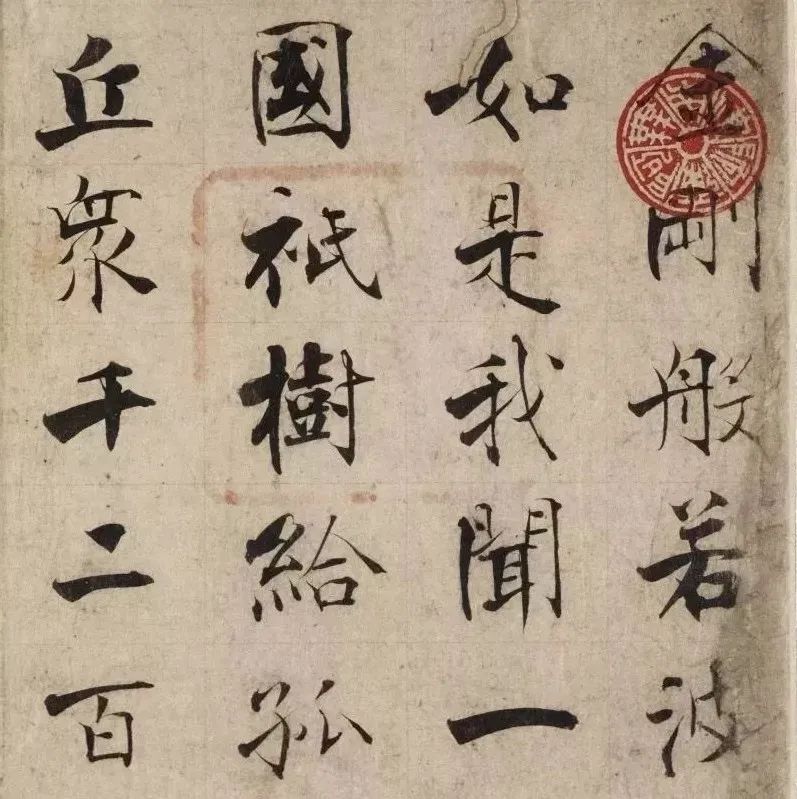 金剛般若波
如是我聞一
國祇樹給孤
丘衆千二百